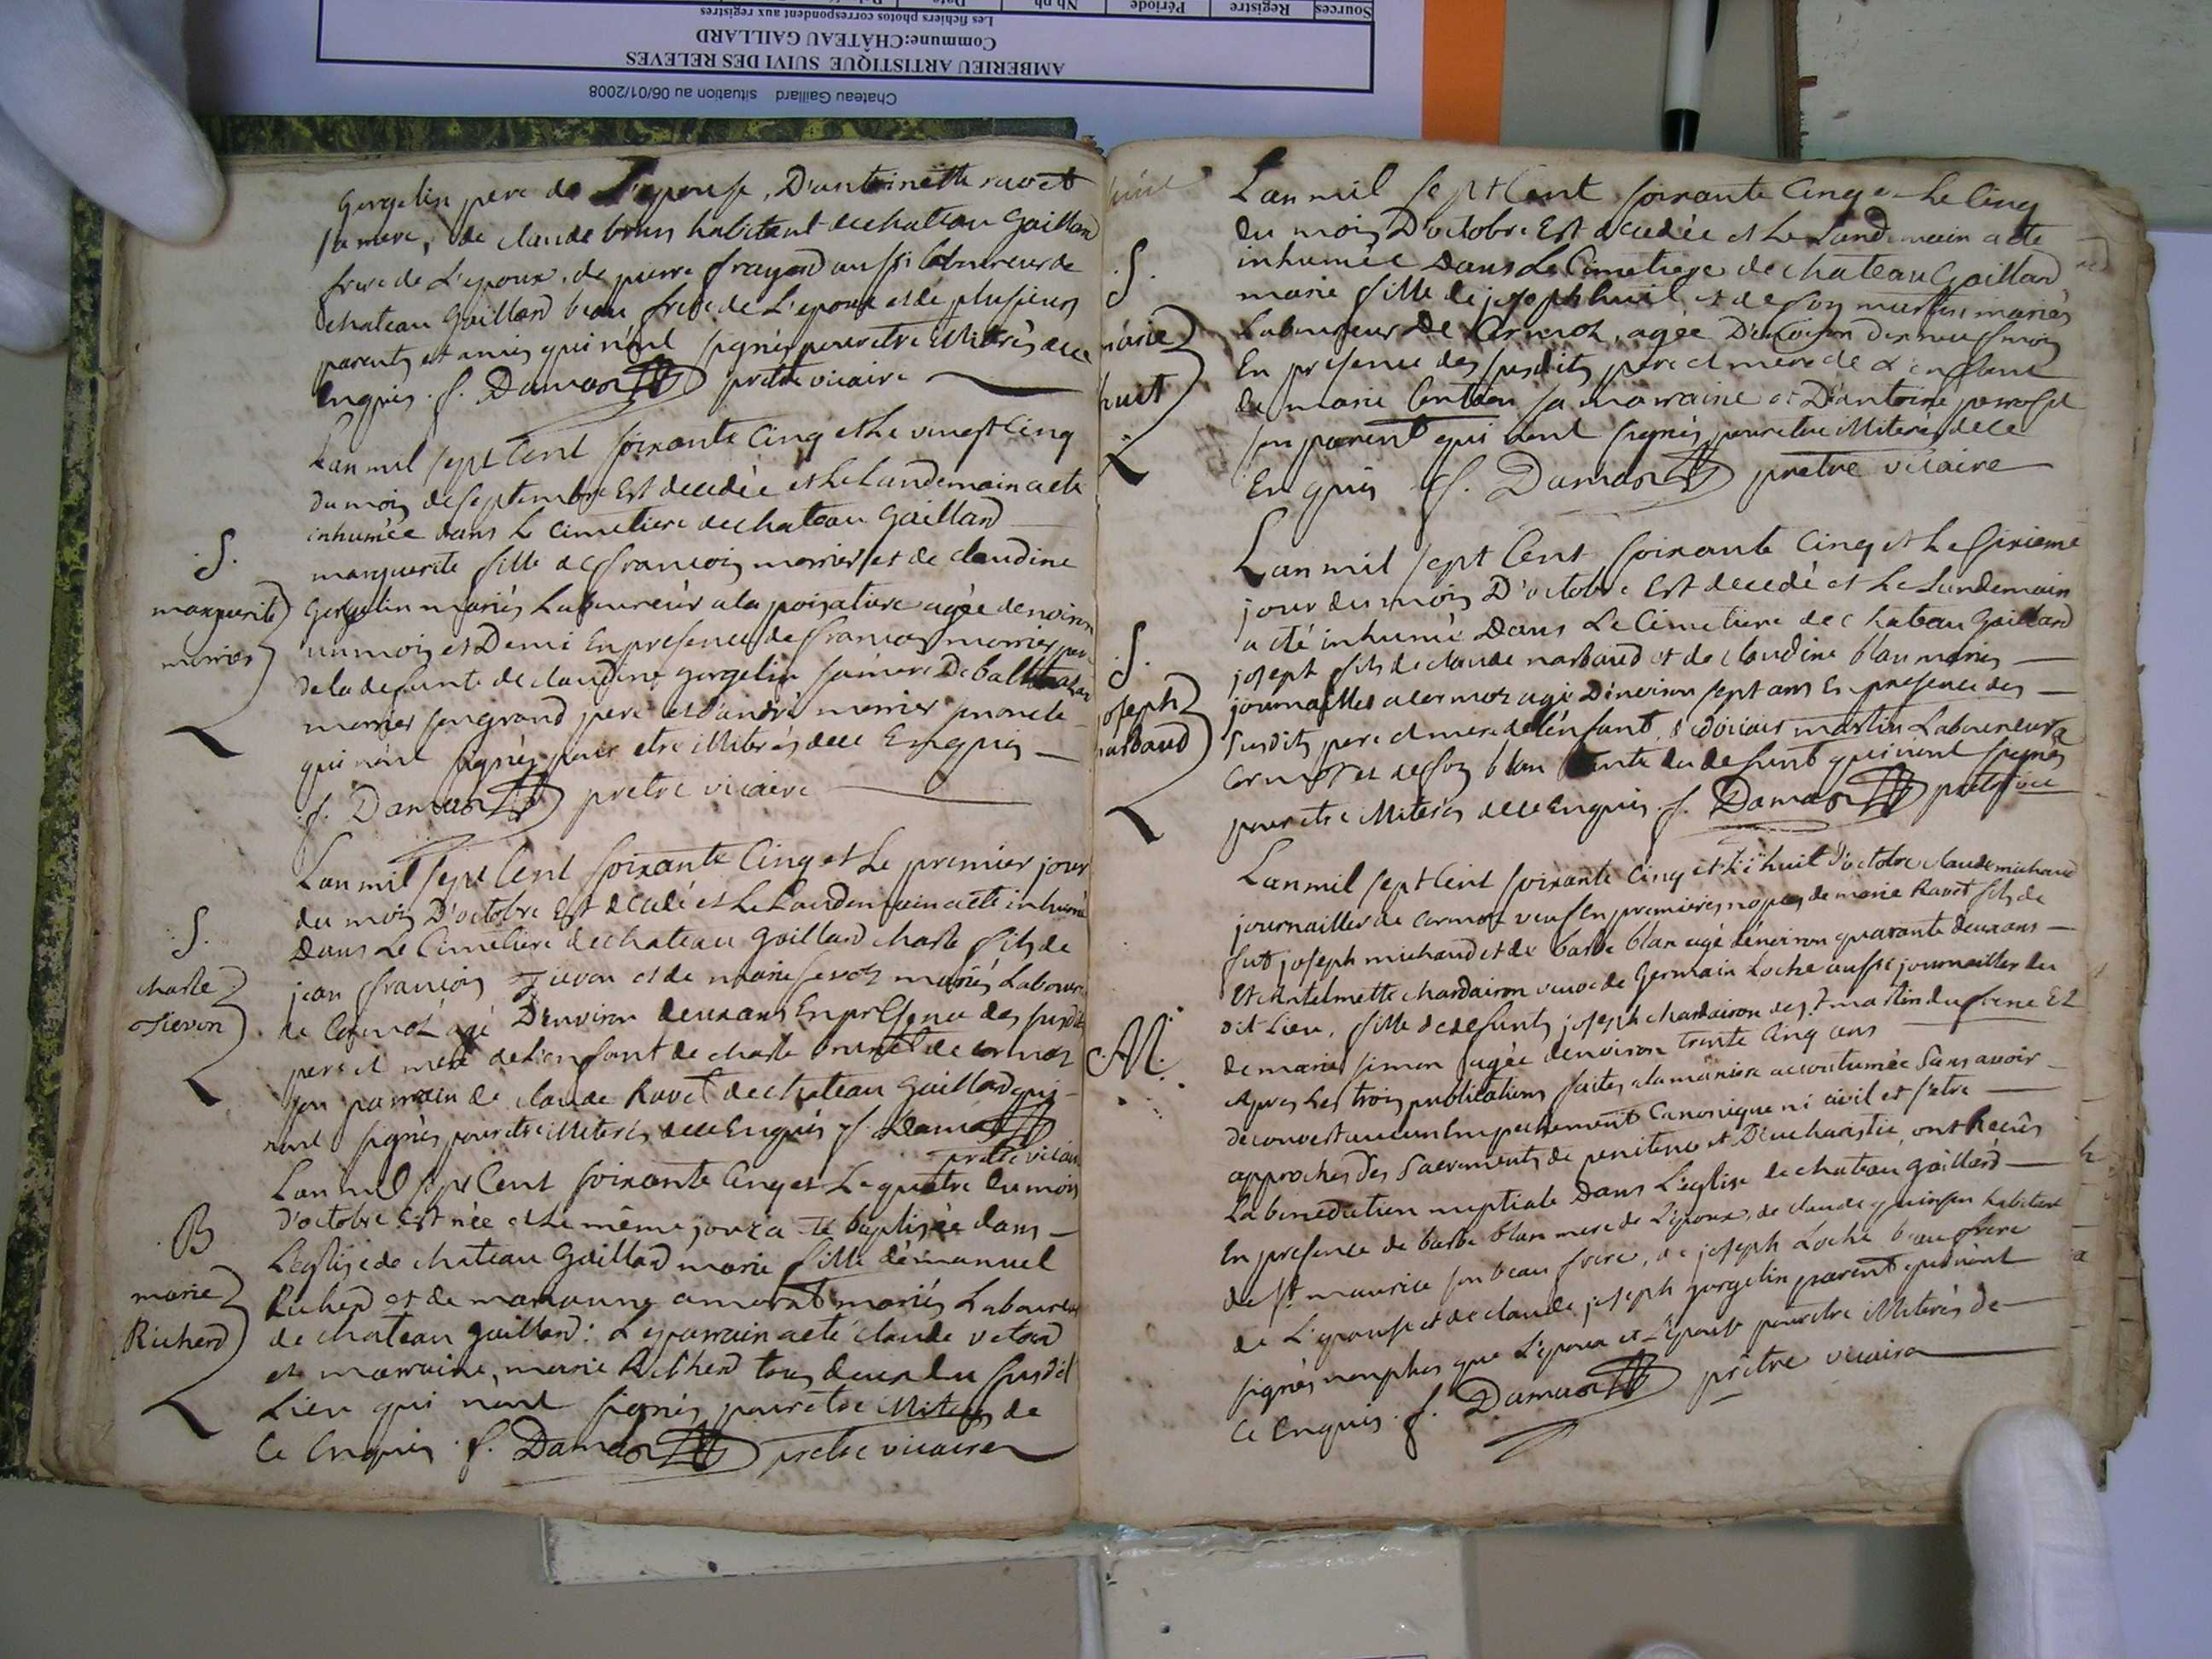 AMBERIEU ARTISTIQUE SUIVI DES RELEVES
Commune:CHÂTEAU GAILLARD
Les fichiers photos correspondent aux registres
Sources Registre Période Nb ph Date
Chateau Gaillard situation au 06/01/2008
Gorgelin pere de L'epouse, D'antoinette ravet
sa mere, de claude brun habitant de chateau Gaillard
frere de L'epoux, de pierre frayard aussi laboureur de
chateau Gaillard beau frere de L'epoux et de plusieurs
parents et amis qui n'ont signés pour etre illiterés de ce
Enquis. f. Damas prêtre vicaire
L'an mil sept Cent soixante Cinq et Le vingt Cinq
du mois de septembre Est decedée et Le Landemain a eté
inhumée dans Le cimetiere de chateau Gaillard
marguerite fille de francois mornier et de claudine
Gorgelin mariés Laboureur a la poisatiere agée denviron
un mois et Demi En presence de francois mornier pere
de la defunte de claudine gorgelin sa mere De balthazar
mornier son grand pere et d'andré mornier son oncle
qui n'ont signés pour etre illiterés de ce Enquis
f. Damas prêtre vicaire
S.
marguerite
mornier
L'an mil sept Cent soixante Cinq et Le premier jour
du mois D'octobre Est decedé et Le Landemain a eté inhumé
Dans Le Cimetiere de chateau Gaillard charle fils de
jean francois et de marie mariés Laboureur
de Cormoz agé D'environ deux ans En presence des susdits
pere et mere de L'enfant de charle de cormoz
son parrain de claude Ravet de chateau Gaillard qui
n'ont signés pour etre illiterés de ce Enquis f. Damas
prêtre vicaire
S.
charle
L'an mil sept Cent soixante Cinq et Le quatre du mois
D'octobre Est née et Le même jour a eté baptisée dans
L'eglise de chateau Gaillard marie fille d'emanuel
Richerd et de marianne mariés Laboureur
de chateau Gaillard: Le parrain a eté claude
et marraine, marie Richerd tous deux du susdit
Lieu qui n'ont signés pour etre illiterés de
Ce Enquis. f. Damas prêtre vicaire
B
marie
Richerd
L'an mil sept Cent soixante Cinq et Le Cinq
du mois D'octobre Est decedée et Le Landemain a eté
inhumée Dans Le Cimetiere de chateau Gaillard
marie fille de joseph huit et de martin mariés
Laboureur De Cormoz, agée D'environ dix neuf mois
En presence des susdits pere et mere de L'enfant
de marie sa marraine et D'antoine
son parent qui n'ont signés pour etre illiterés de ce
Enquis f. Damas prêtre vicaire
S.
marie
huit
L'an mil sept Cent soixante Cinq et Le sixieme
jour du mois D'octobre Est decedé et Le Landemain
a eté inhumé Dans Le Cimetiere de chateau Gaillard
joseph fils de claude narbaud et de claudine blan mariés
journailles a cormoz agé D'environ sept ans En presence des
susdits pere et mere de l'enfant, martin Laboureur a
cormoz et de blan tante du defunt qui n'ont signés
pour etre illiterés de ce Enquis. f. Damas prêtre vic
S.
joseph
narbaud
L'an mil sept Cent soixante Cinq et Le huit d'octobre claude michaud
journailler de cormoz veuf En premieres nopces de marie Ravet fils de
fut joseph michaud et de barbe blan agé d'environ quarante deux ans
Et Antelmette chardairon veuve de Germain Loche aussi journailler du
dit Lieu, fille de defunts joseph chardairon de St martin du fresne Et
de marie simon agée d'environ trente Cinq ans
Apres Les trois publications faites a la maniere accoutumée sans avoir
decouvert aucun Empechement Canonique ni civil et s'etre
approchés Des Sacrements de penitence et D'eucharistie, ont Recûs
La benediction nuptiale Dans L'eglise de chateau gaillard
En presence de barbe blan mere de L'epoux, de claude habitant
de St maurice son beau frere, de joseph Loche beau frere
de L'epouse et de claude joseph gorgelin parent qui n'ont
signés non plus que L'epoux et L'epouse pour etre illiterés de
Ce Enquis. f. Damas prêtre vicaire
M.